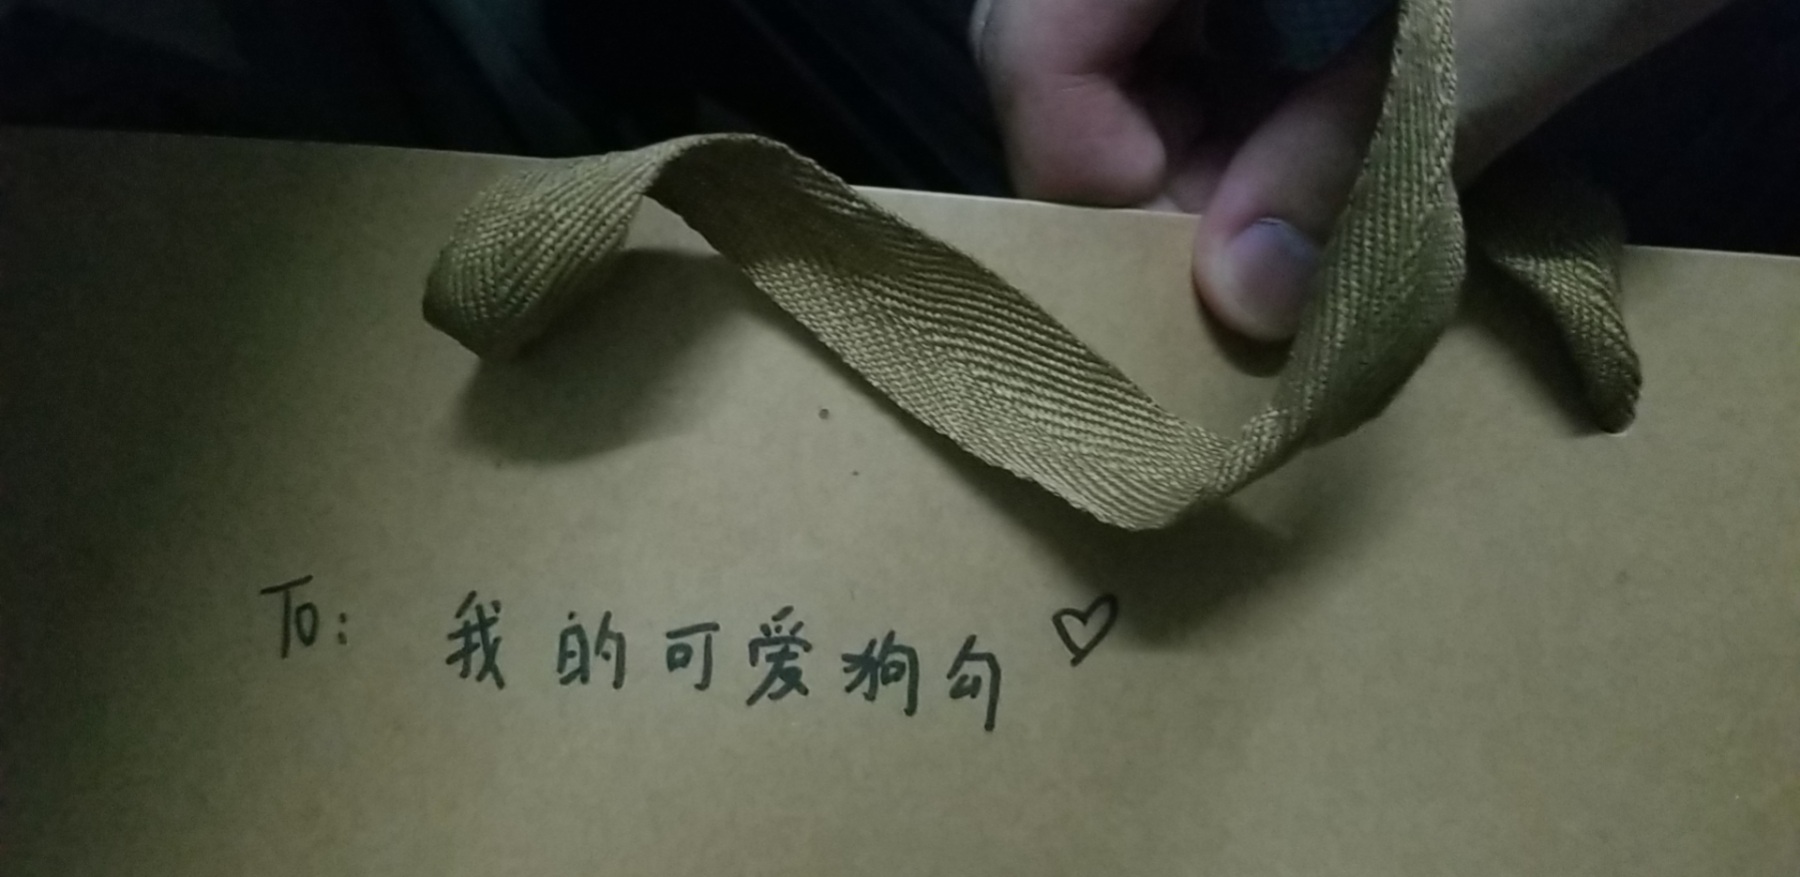 To: 我的可爱狗勾♡